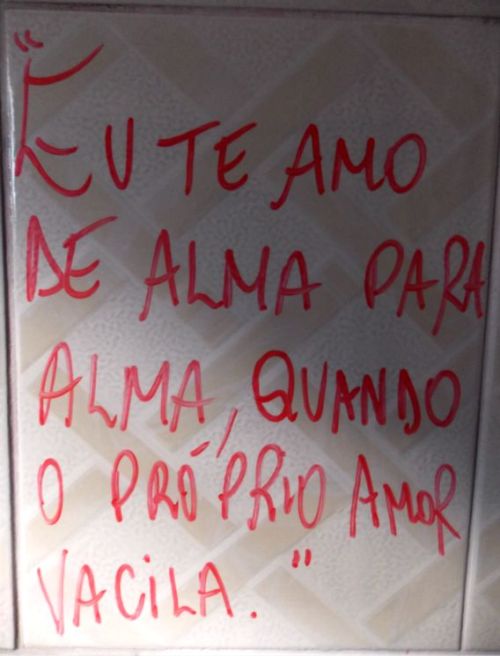 "EU TE AMO
DE ALMA PARA
ALMA, QUANDO
O PRÓPRIO AMOR
VACILA."